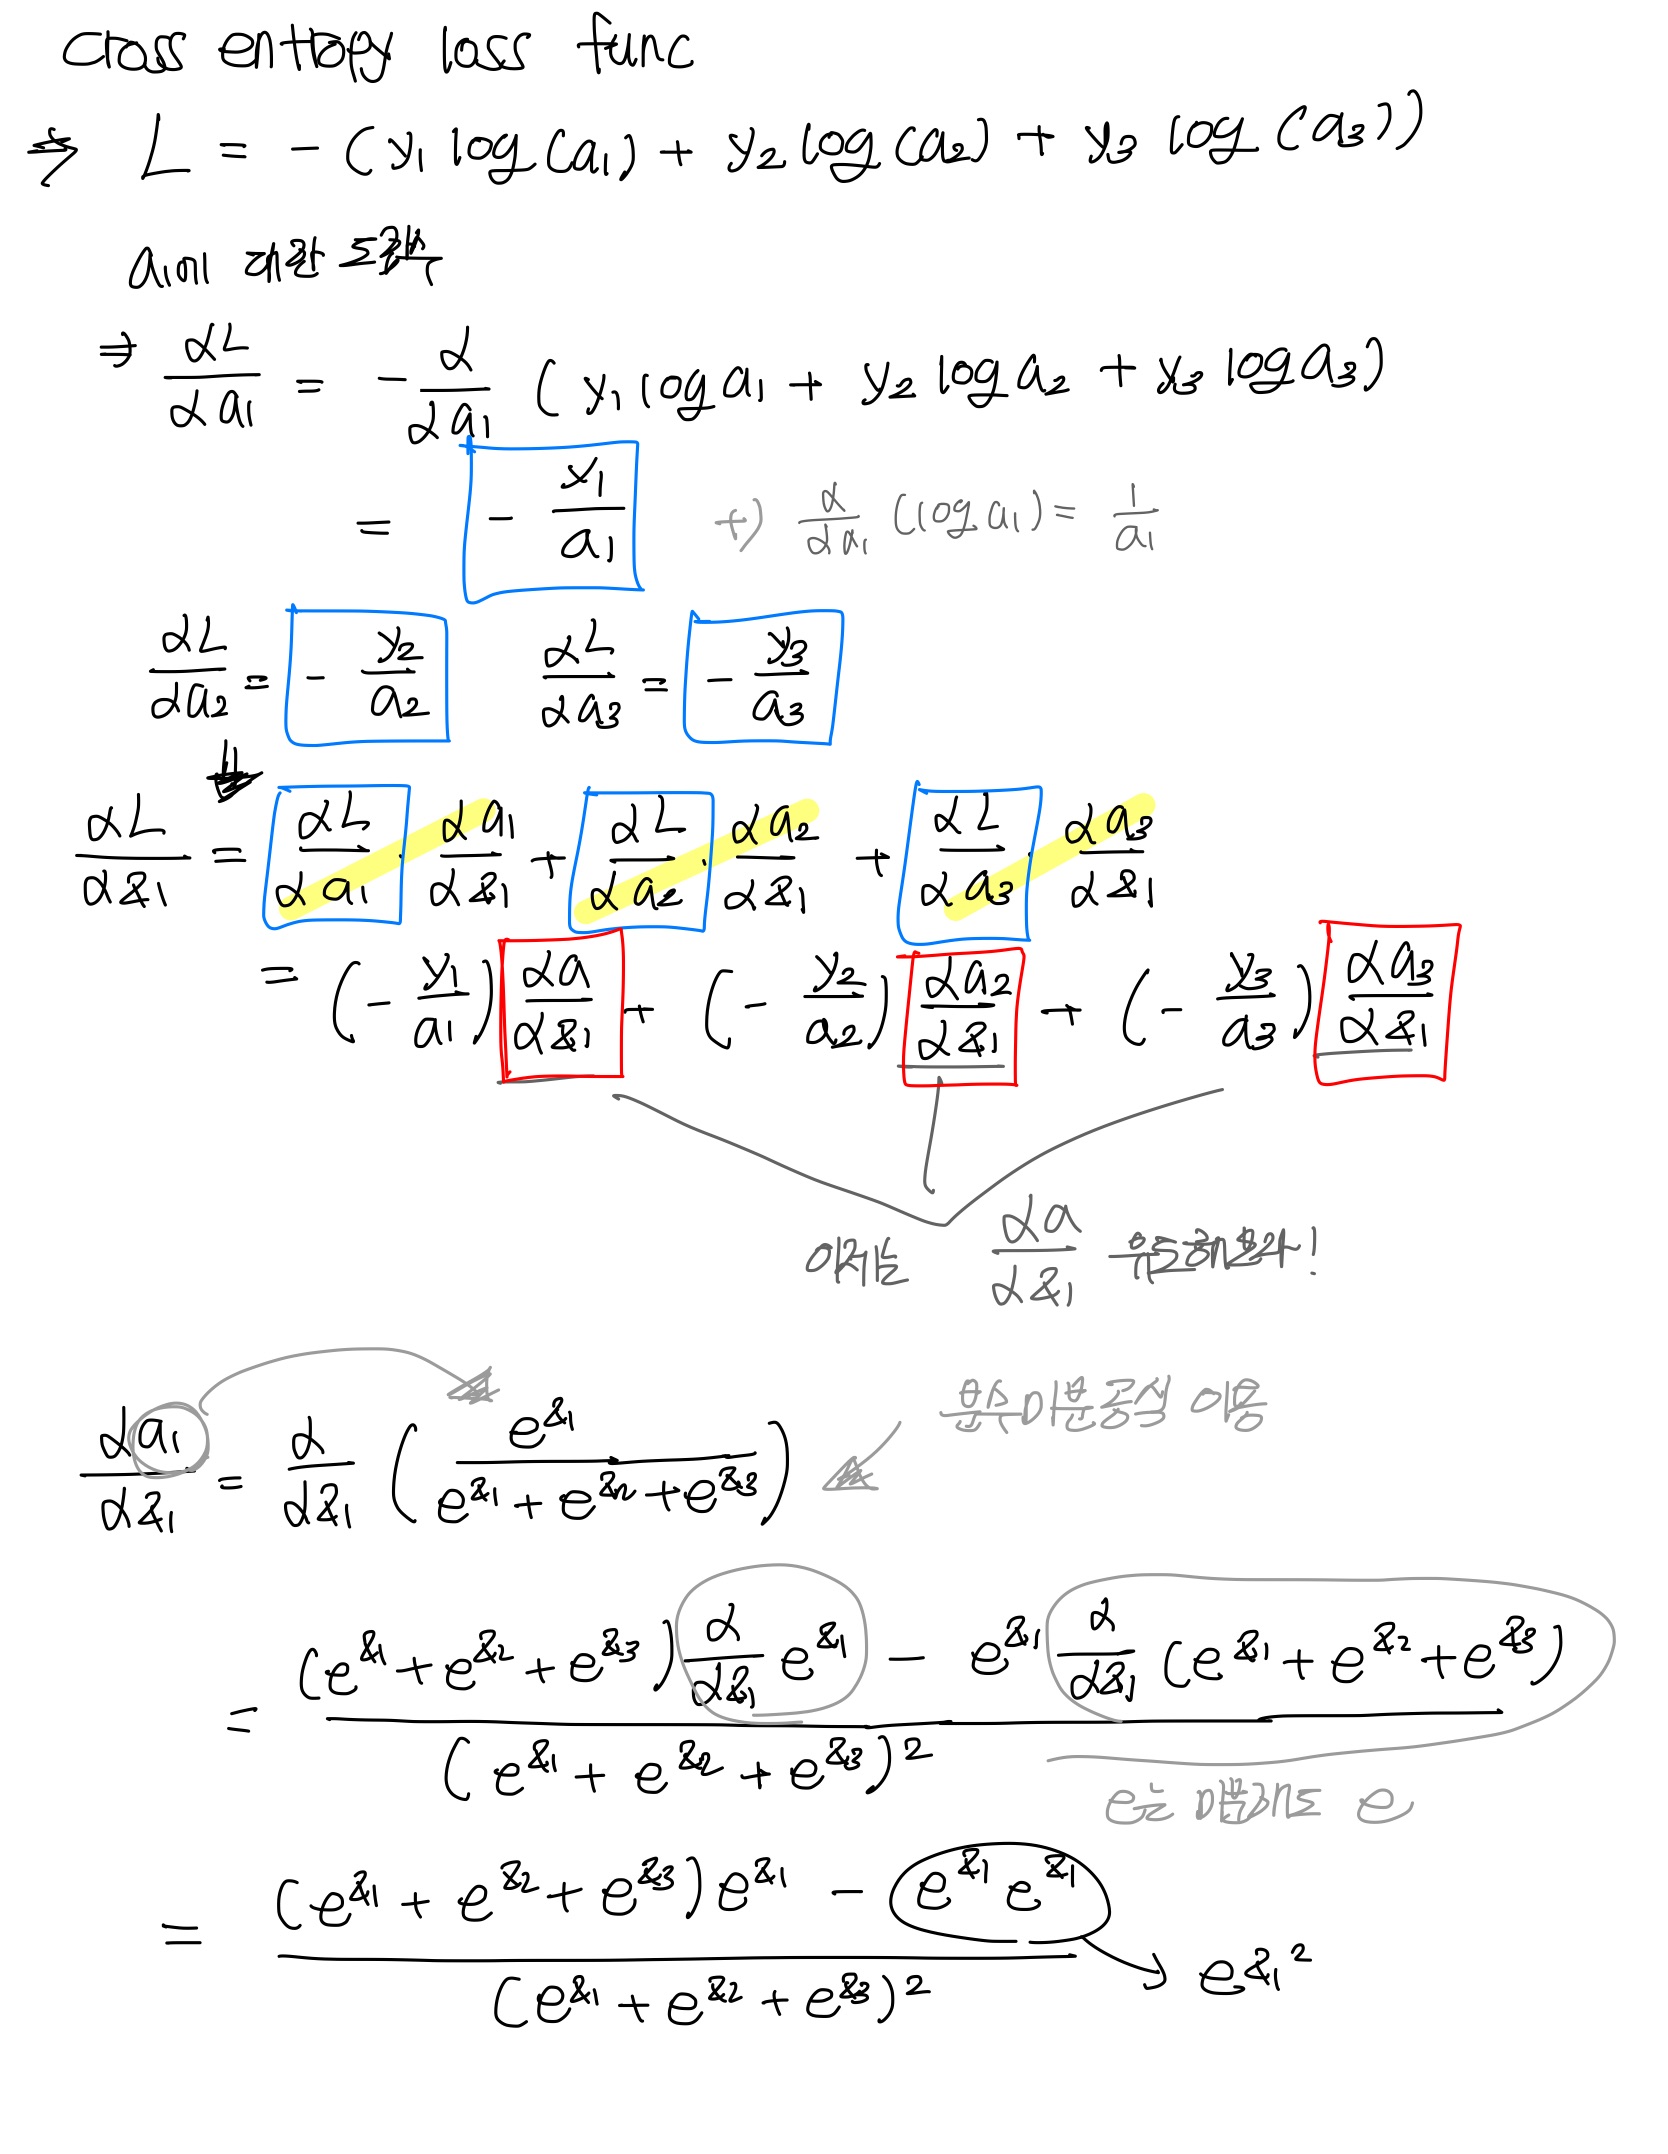 cross entropy loss func
⇒ L = - (y₁ log(a₁) + y₂ log(a₂) + y₃ log(a₃))
a₁에 대한 도함수
⇒ ∂L/∂a₁ = - ∂/∂a₁ (y₁ log a₁ + y₂ log a₂ + y₃ log a₃)
= - y₁/a₁ +) ∂/∂a₁ (log a₁) = 1/a₁
∂L/∂a₂ = - y₂/a₂ ∂L/∂a₃ = - y₃/a₃
∂L/∂z₁ = ∂L/∂a₁ · ∂a₁/∂z₁ + ∂L/∂a₂ · ∂a₂/∂z₁ + ∂L/∂a₃ · ∂a₃/∂z₁
= (- y₁/a₁) ∂a/∂z₁ + (- y₂/a₂) ∂a₂/∂z₁ + (- y₃/a₃) ∂a₃/∂z₁
이제는 ∂a/∂z₁ 유도해보자!
분수미분공식 이용
∂a₁/∂z₁ = ∂/∂z₁ (e^z₁ / (e^z₁ + e^z₂ + e^z₃))
= ((e^z₁ + e^z₂ + e^z₃) ∂/∂z₁ e^z₁ - e^z₁ ∂/∂z₁ (e^z₁ + e^z₂ + e^z₃)) / (e^z₁ + e^z₂ + e^z₃)²
e는 미분해도 e
= ((e^z₁ + e^z₂ + e^z₃) e^z₁ - e^z₁ e^z₁) / (e^z₁ + e^z₂ + e^z₃)² → e^z₁²